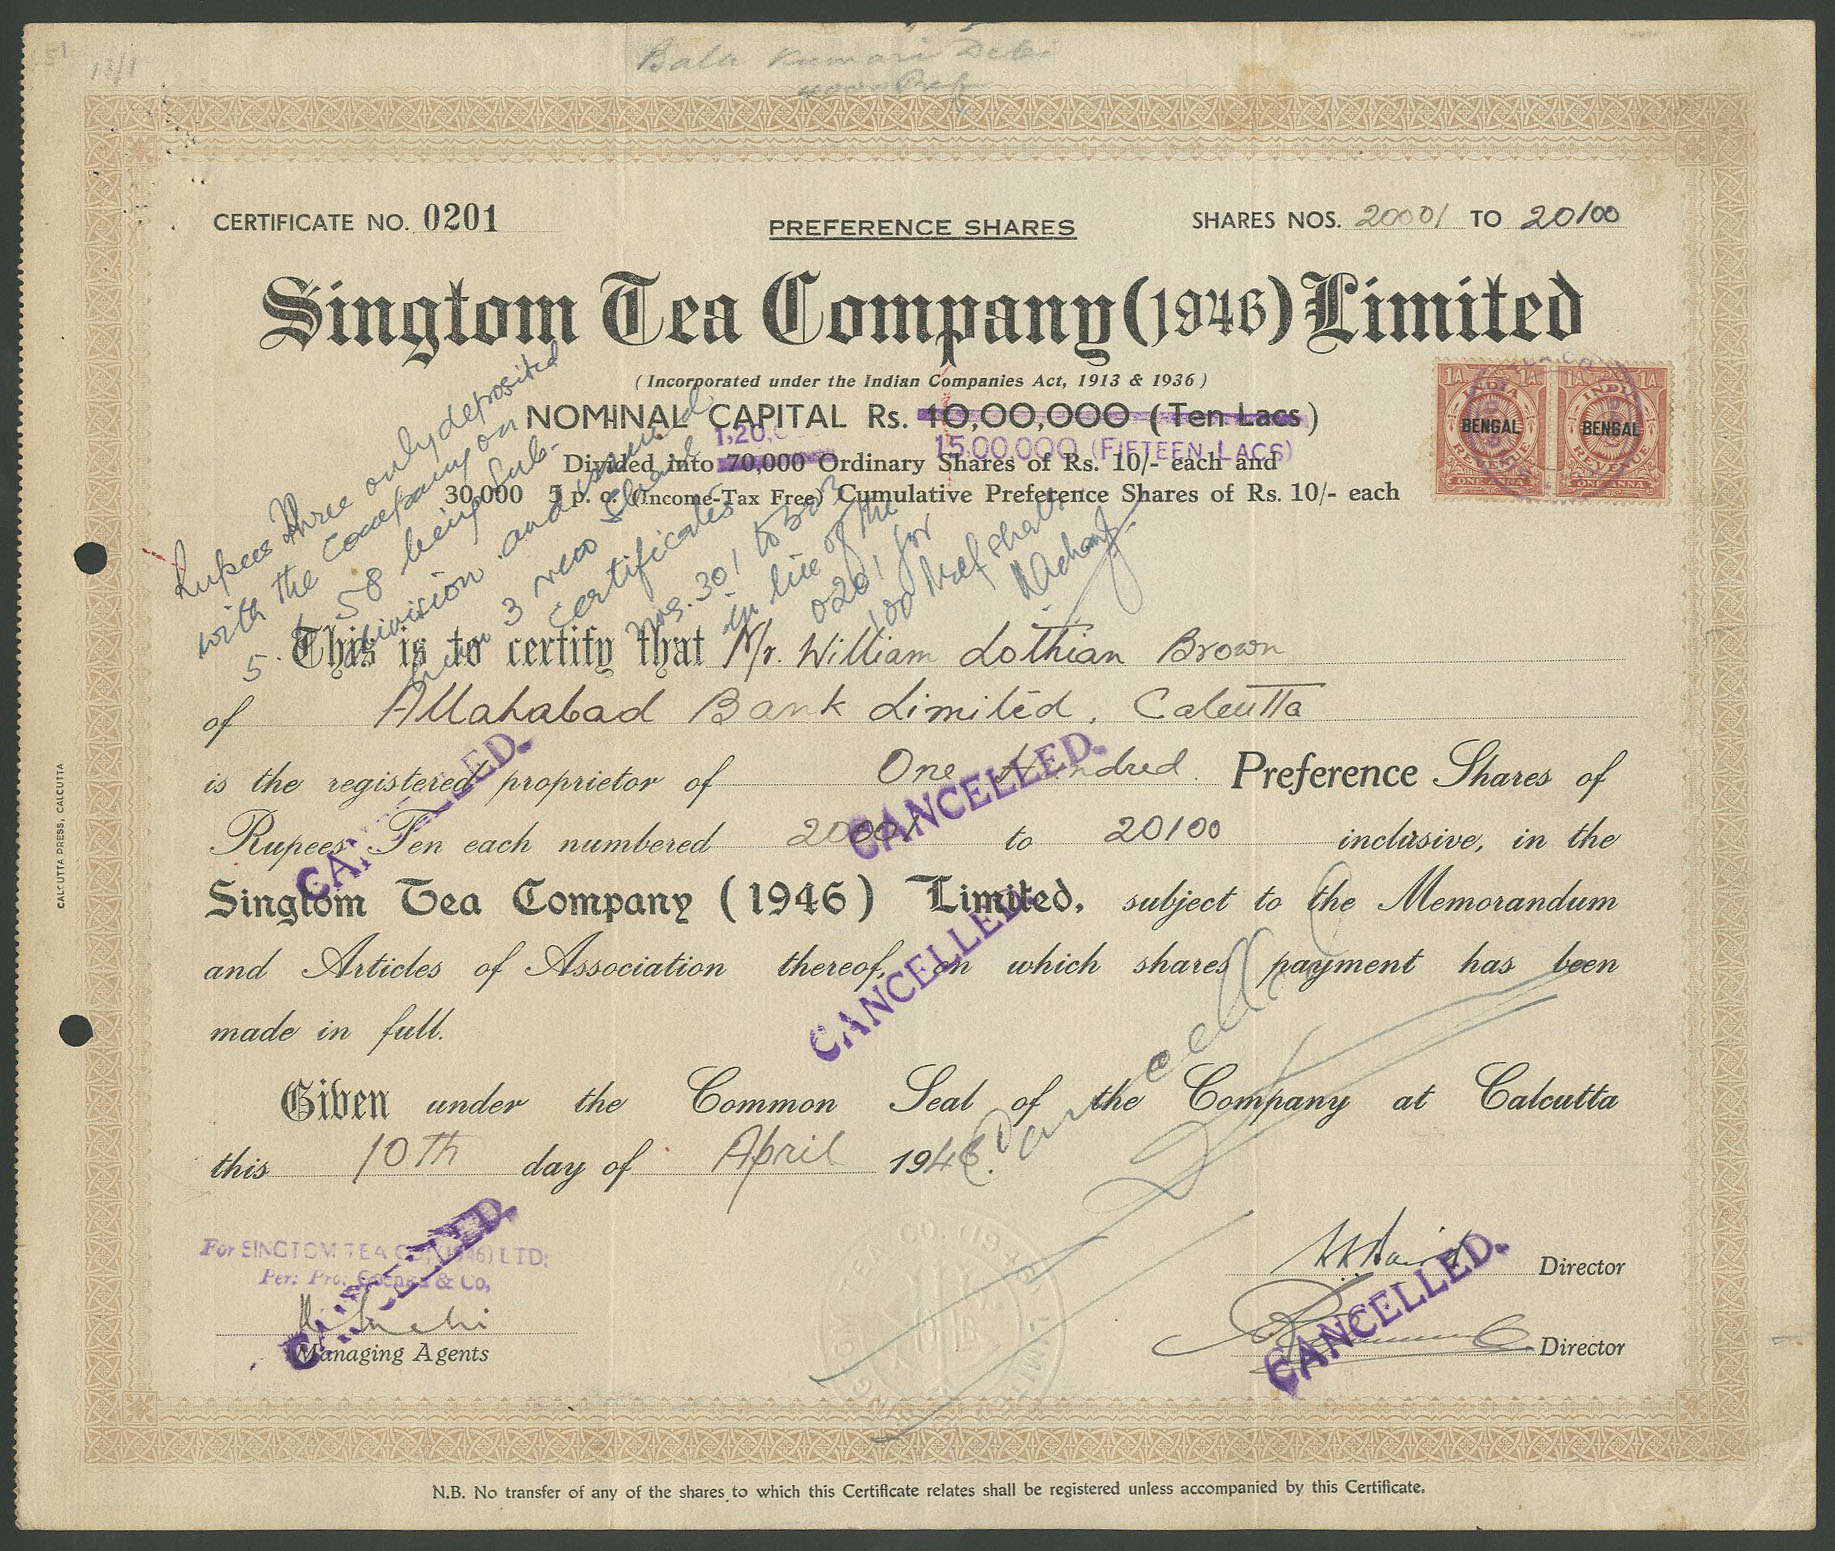 Bala Kumari Debi
4000 Pref
CERTIFICATE NO. 0201
PREFERENCE SHARES
SHARES NOS. 20001 TO 20100
Singtom Tea Company (1946) Limited
(Incorporated under the Indian Companies Act, 1913 & 1936)
NOMINAL CAPITAL Rs. 10,00,000 (Ten Lacs)
15,00,000 (FIFTEEN LACS)
1,20,
Divided into 70,000 Ordinary Shares of Rs. 10/- each and
30,000 5 p. c. (Income-Tax Free) Cumulative Preference Shares of Rs. 10/- each
1A INDIA 1A
BENGAL
REVENUE
ONE ANNA
1A INDIA 1A
BENGAL
REVENUE
ONE ANNA
Rupees three only deposited
with the Company on
5 58 being Sub-
division and issued
3 new Share
certificates
Nos. 301 to 303
in lieu of the
0201 for
100 Pref shares
This is to certify that Mr. William Lothian Brown
of Allahabad Bank Limited, Calcutta
is the registered proprietor of One Hundred Preference Shares of
Rupees Ten each numbered 20001 to 20100 inclusive, in the
Singtom Tea Company (1946) Limited, subject to the Memorandum
and Articles of Association thereof, on which shares payment has been
made in full.
Given under the Common Seal of the Company at Calcutta
this 10th day of April 1946.
CANCELLED.
CANCELLED.
CANCELLED.
Cancelled
For SINGTOM TEA CO. (1946) LTD:
Per: Pro. Goenka & Co,
CANCELLED.
Managing Agents
Director
CANCELLED.
Director
CALCUTTA PRESS, CALCUTTA
N.B. No transfer of any of the shares to which this Certificate relates shall be registered unless accompanied by this Certificate.